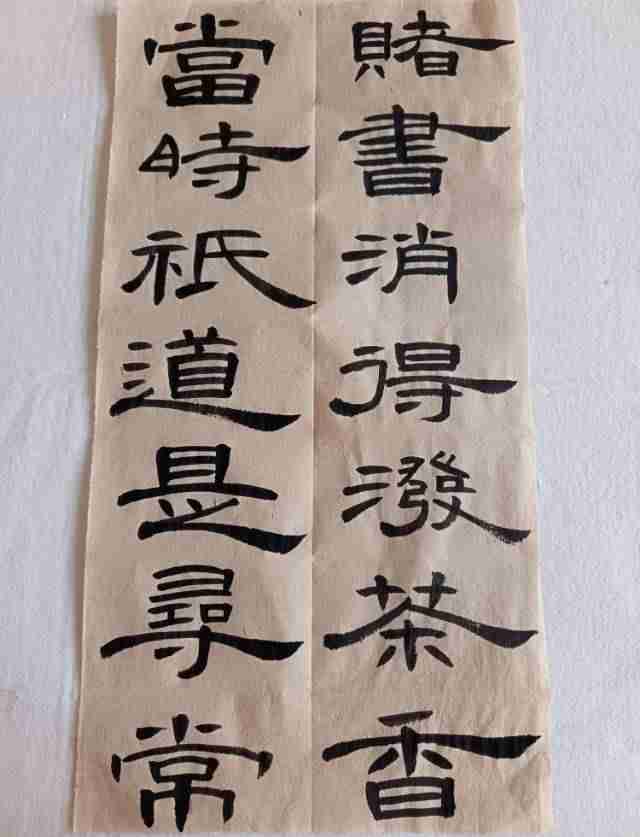 賭書消得潑茶香
當時祇道是尋常